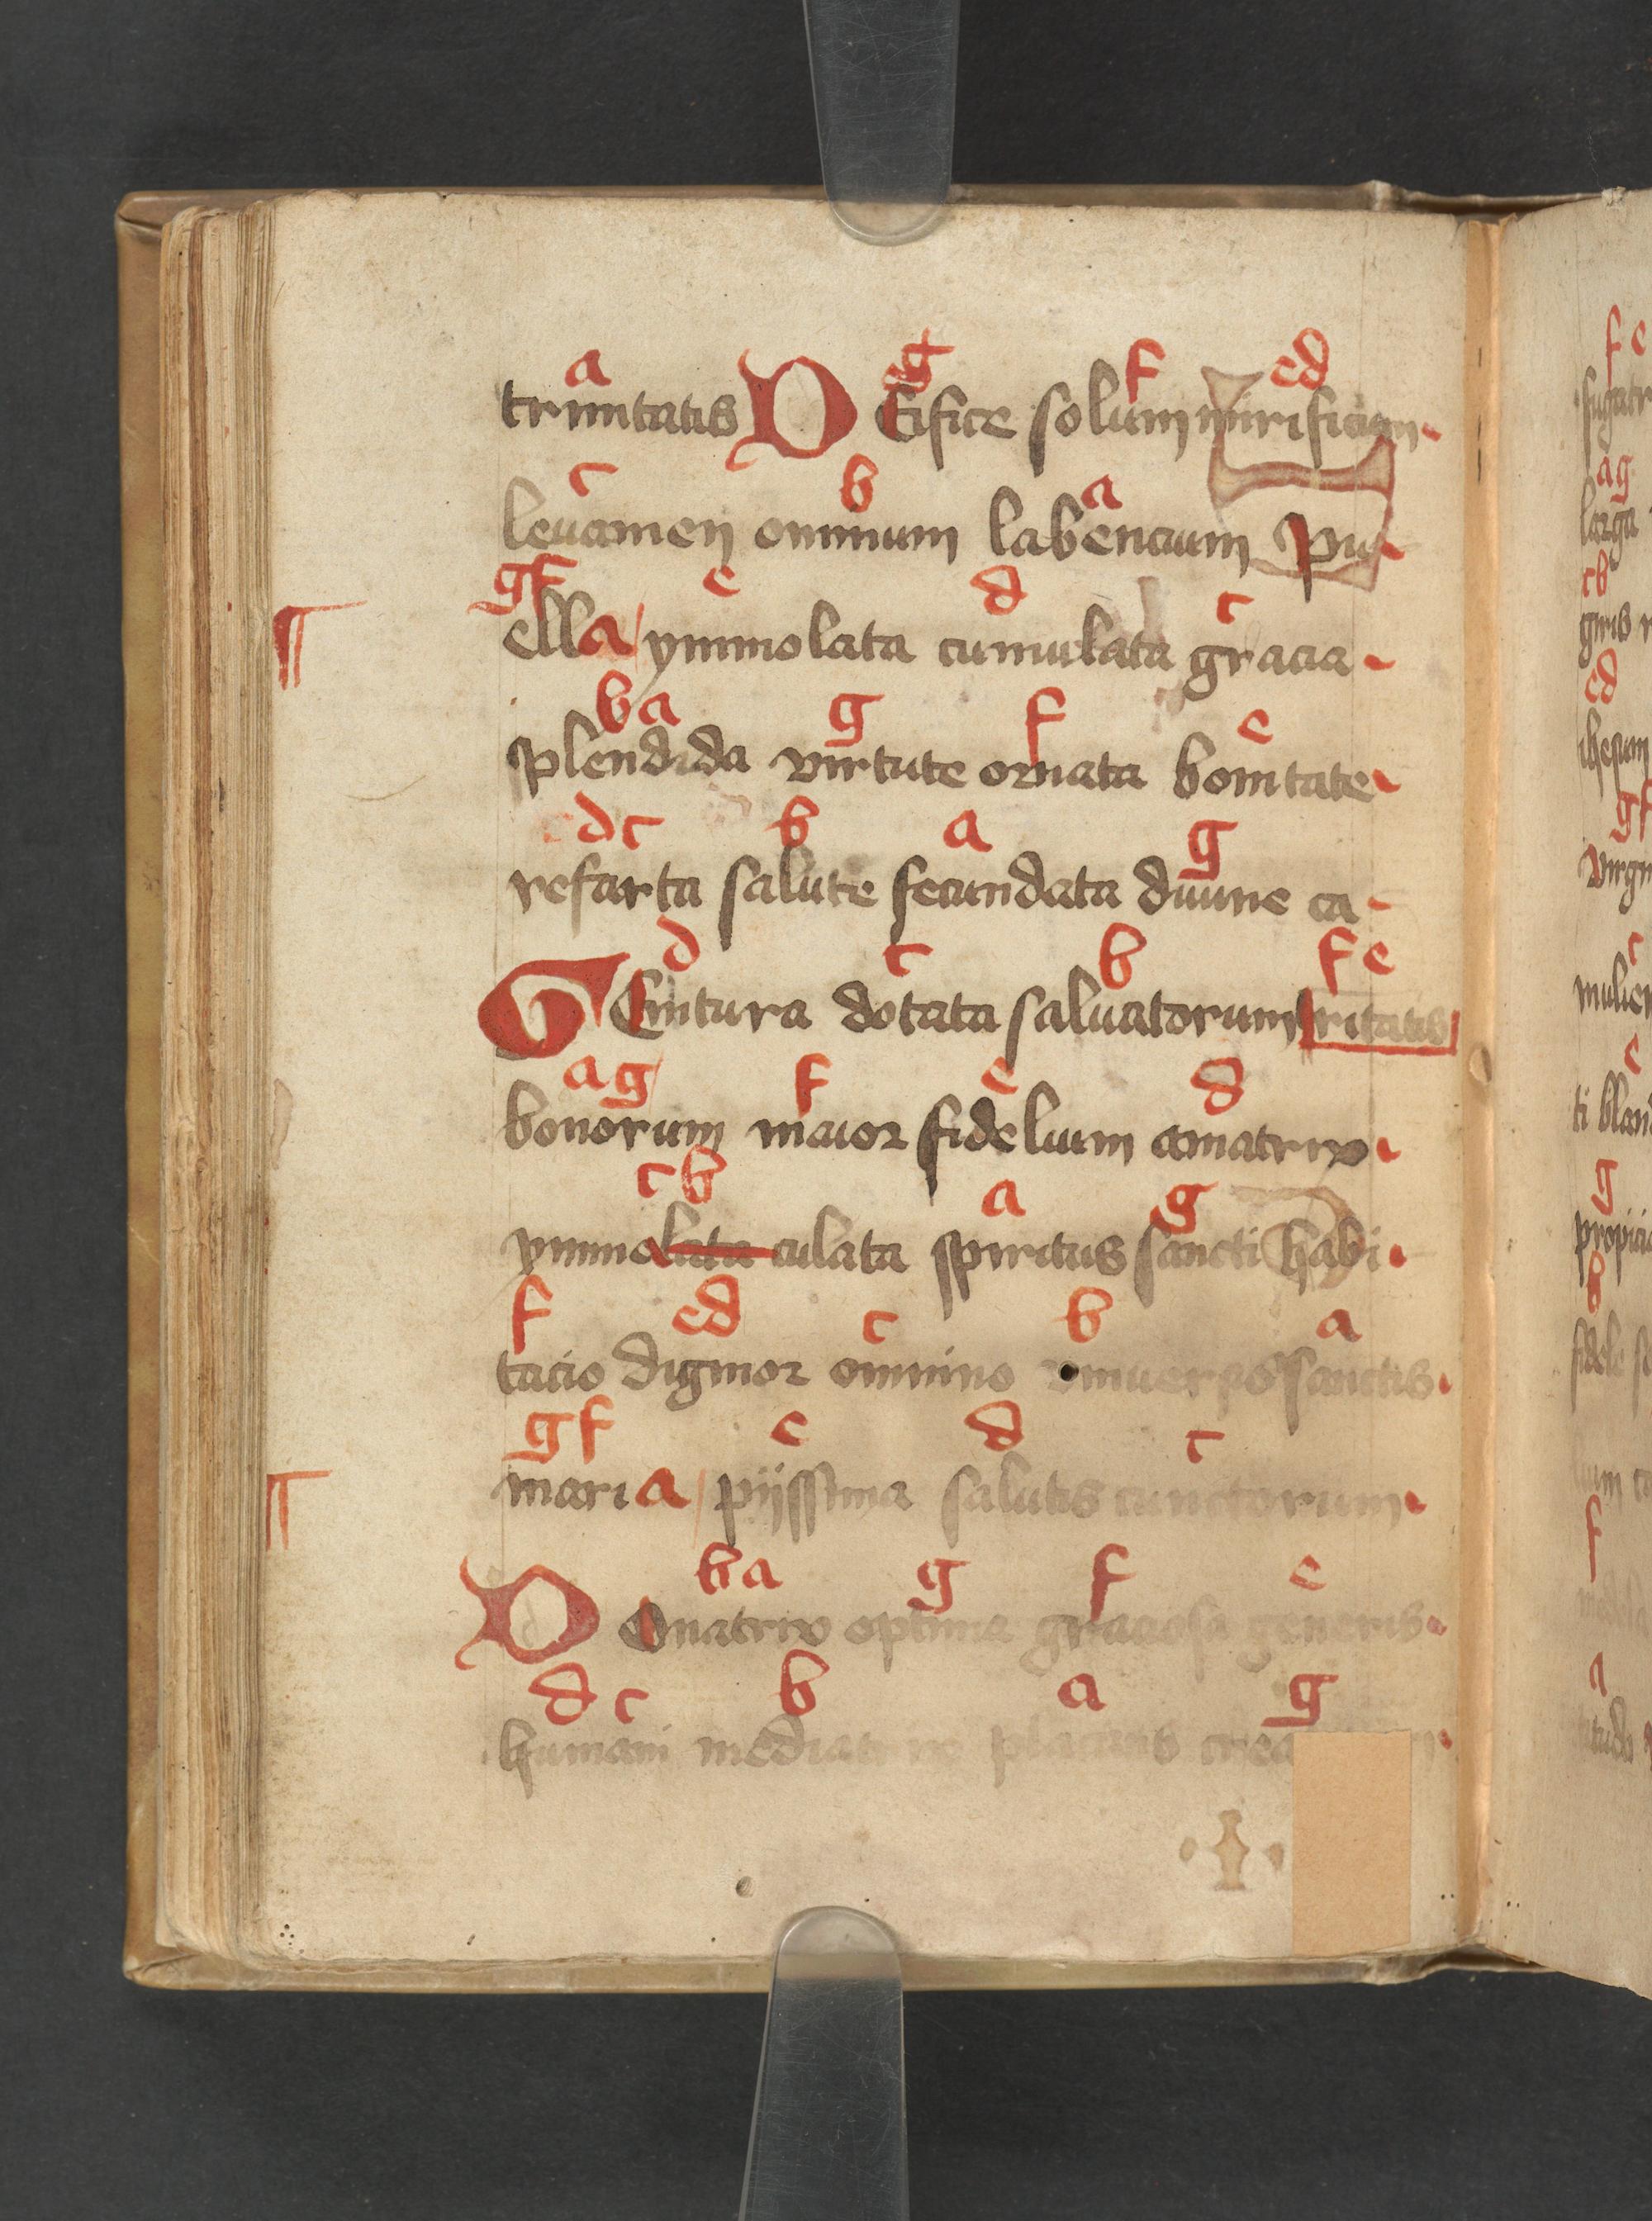 a g f ed
trinitatis Opifice solum mirificum
c b a
leuamen omnium labencium Pu
gf e d c
ella ymmolata cumulata gracia
ba g f e
splendida virtute ornata bonitate
dc b a g
refarta salute fecundata diuine ca
d c b fe
GEnitura dotata saluatorum ritatis
ag f e d
bonorum maior fidelium amatrix
cb a g
ymmolata culata spiritus sancti habi
f ed c b a
tacio dignior omnino vniuersis sanctis
gf e d c
maria piissima salutis cunctorum
ba g f e
DOnatrix optima graciosa generis
dc b a g
humani mediatrix
fe
ag
cb
ed
ihesum
gf
c
e
g
b
f
a